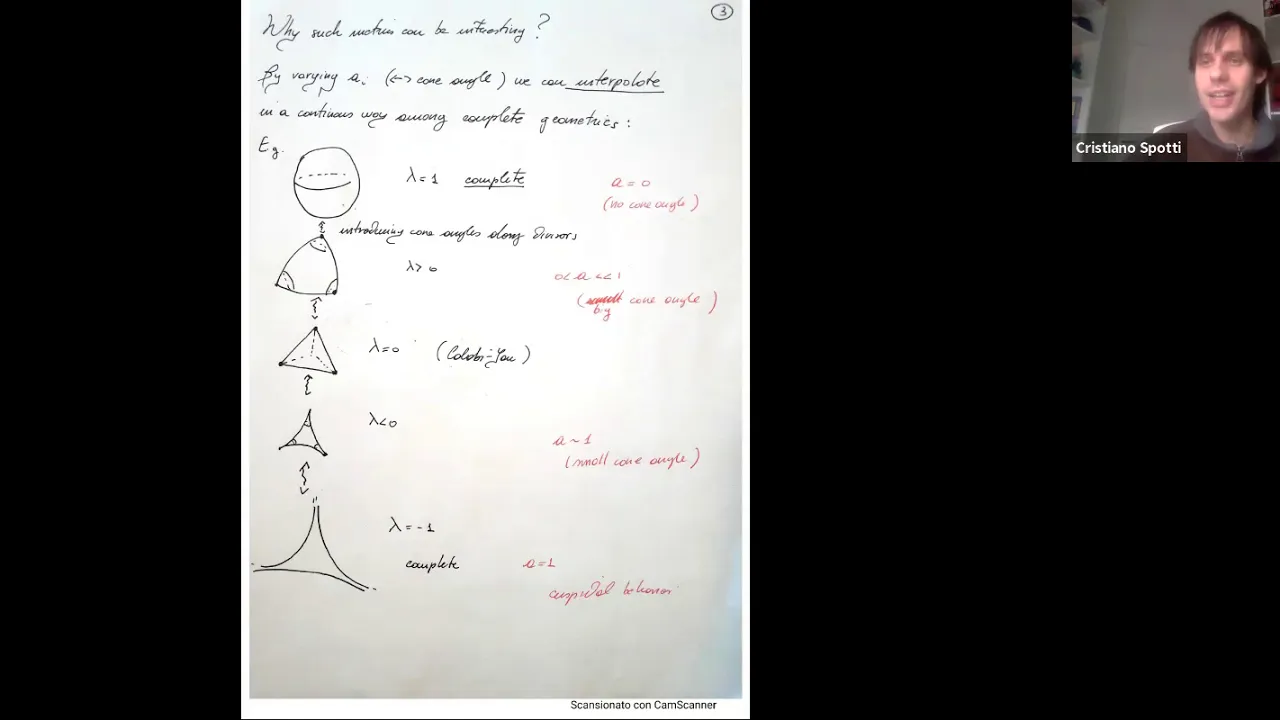 3
Why such metrics can be interesting?
By varying a: (↔ cone angle) we can interpolate
in a continuous way among complete geometries:
E.g.
λ=1 complete
a=0
(no cone angle)
introducing cone angles along divisors
λ>0
0<a<<1
(small cone angle)
big
λ=0 (Calabi-Yau)
λ<0
a~1
(small cone angle)
λ=-1
complete
a=1
cuspidal behavior
Scansionato con CamScanner
Cristiano Spotti